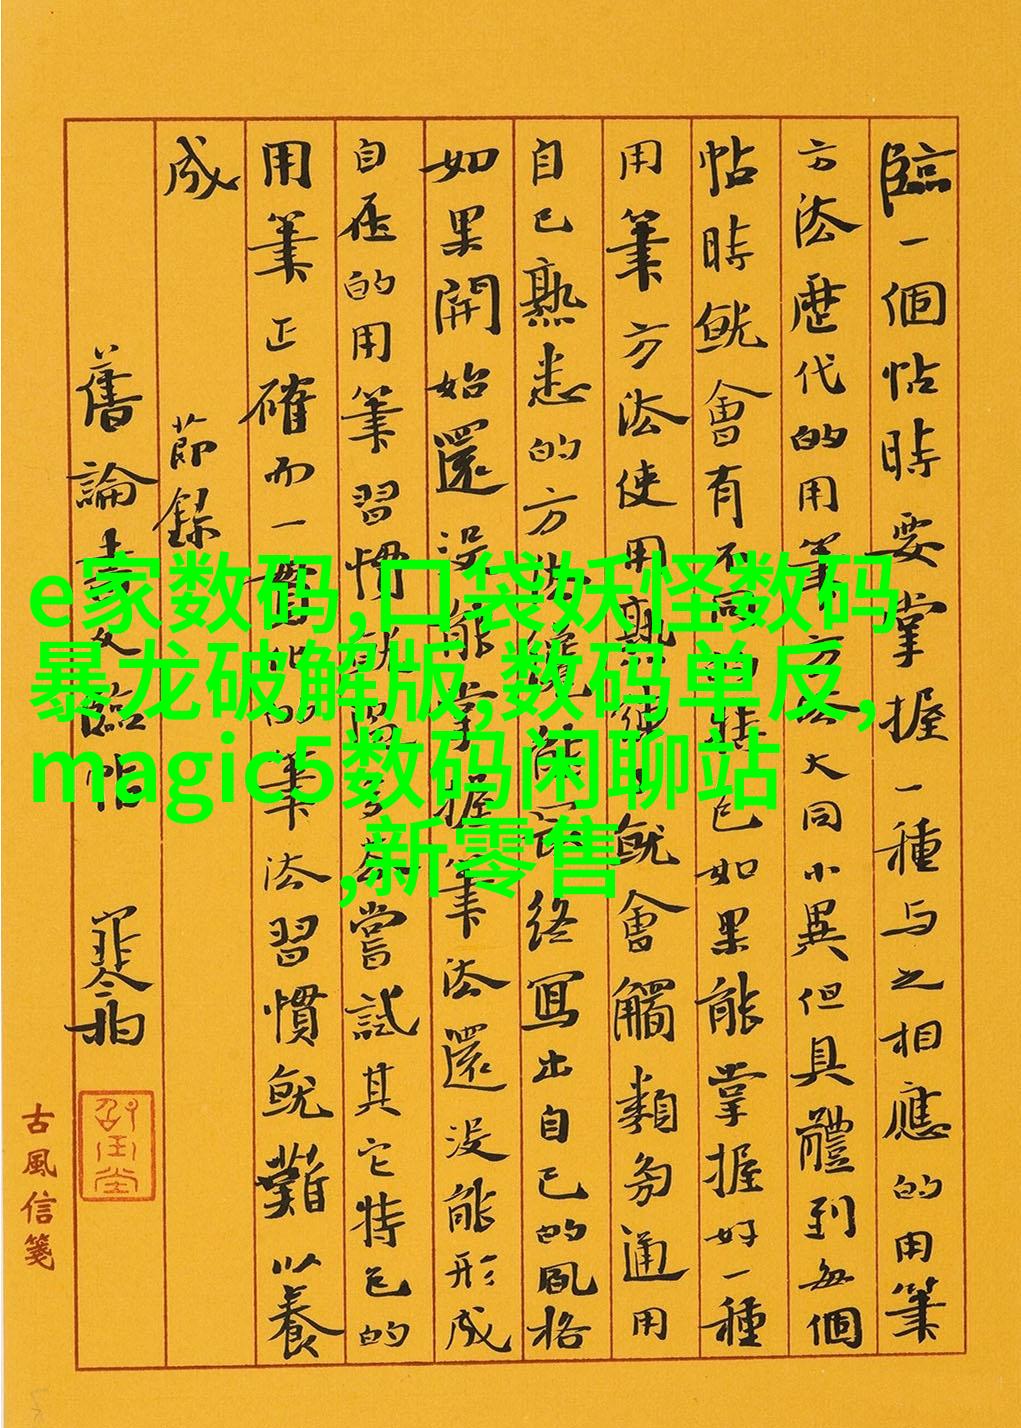 臨一個帖時要掌握一種与之相應的用筆
方法歷代的用筆方法大同小異但具體到每個
帖時就會有不同的特色如果能掌握好一種
用筆方法使用熟就會觸類旁通用
自己熟悉的方法能終寫出自己的風格
如果開始還沒能掌握筆法還沒能形成
自在的用筆習慣就過多嘗試其它特色的
用筆正確而一筆法習慣就難以養
成 節錄
舊論書文臨帖
古風信箋
e家数码,口袋妖怪数码
暴龙破解版,数码单反,
magic5数码闲聊站
,新零售